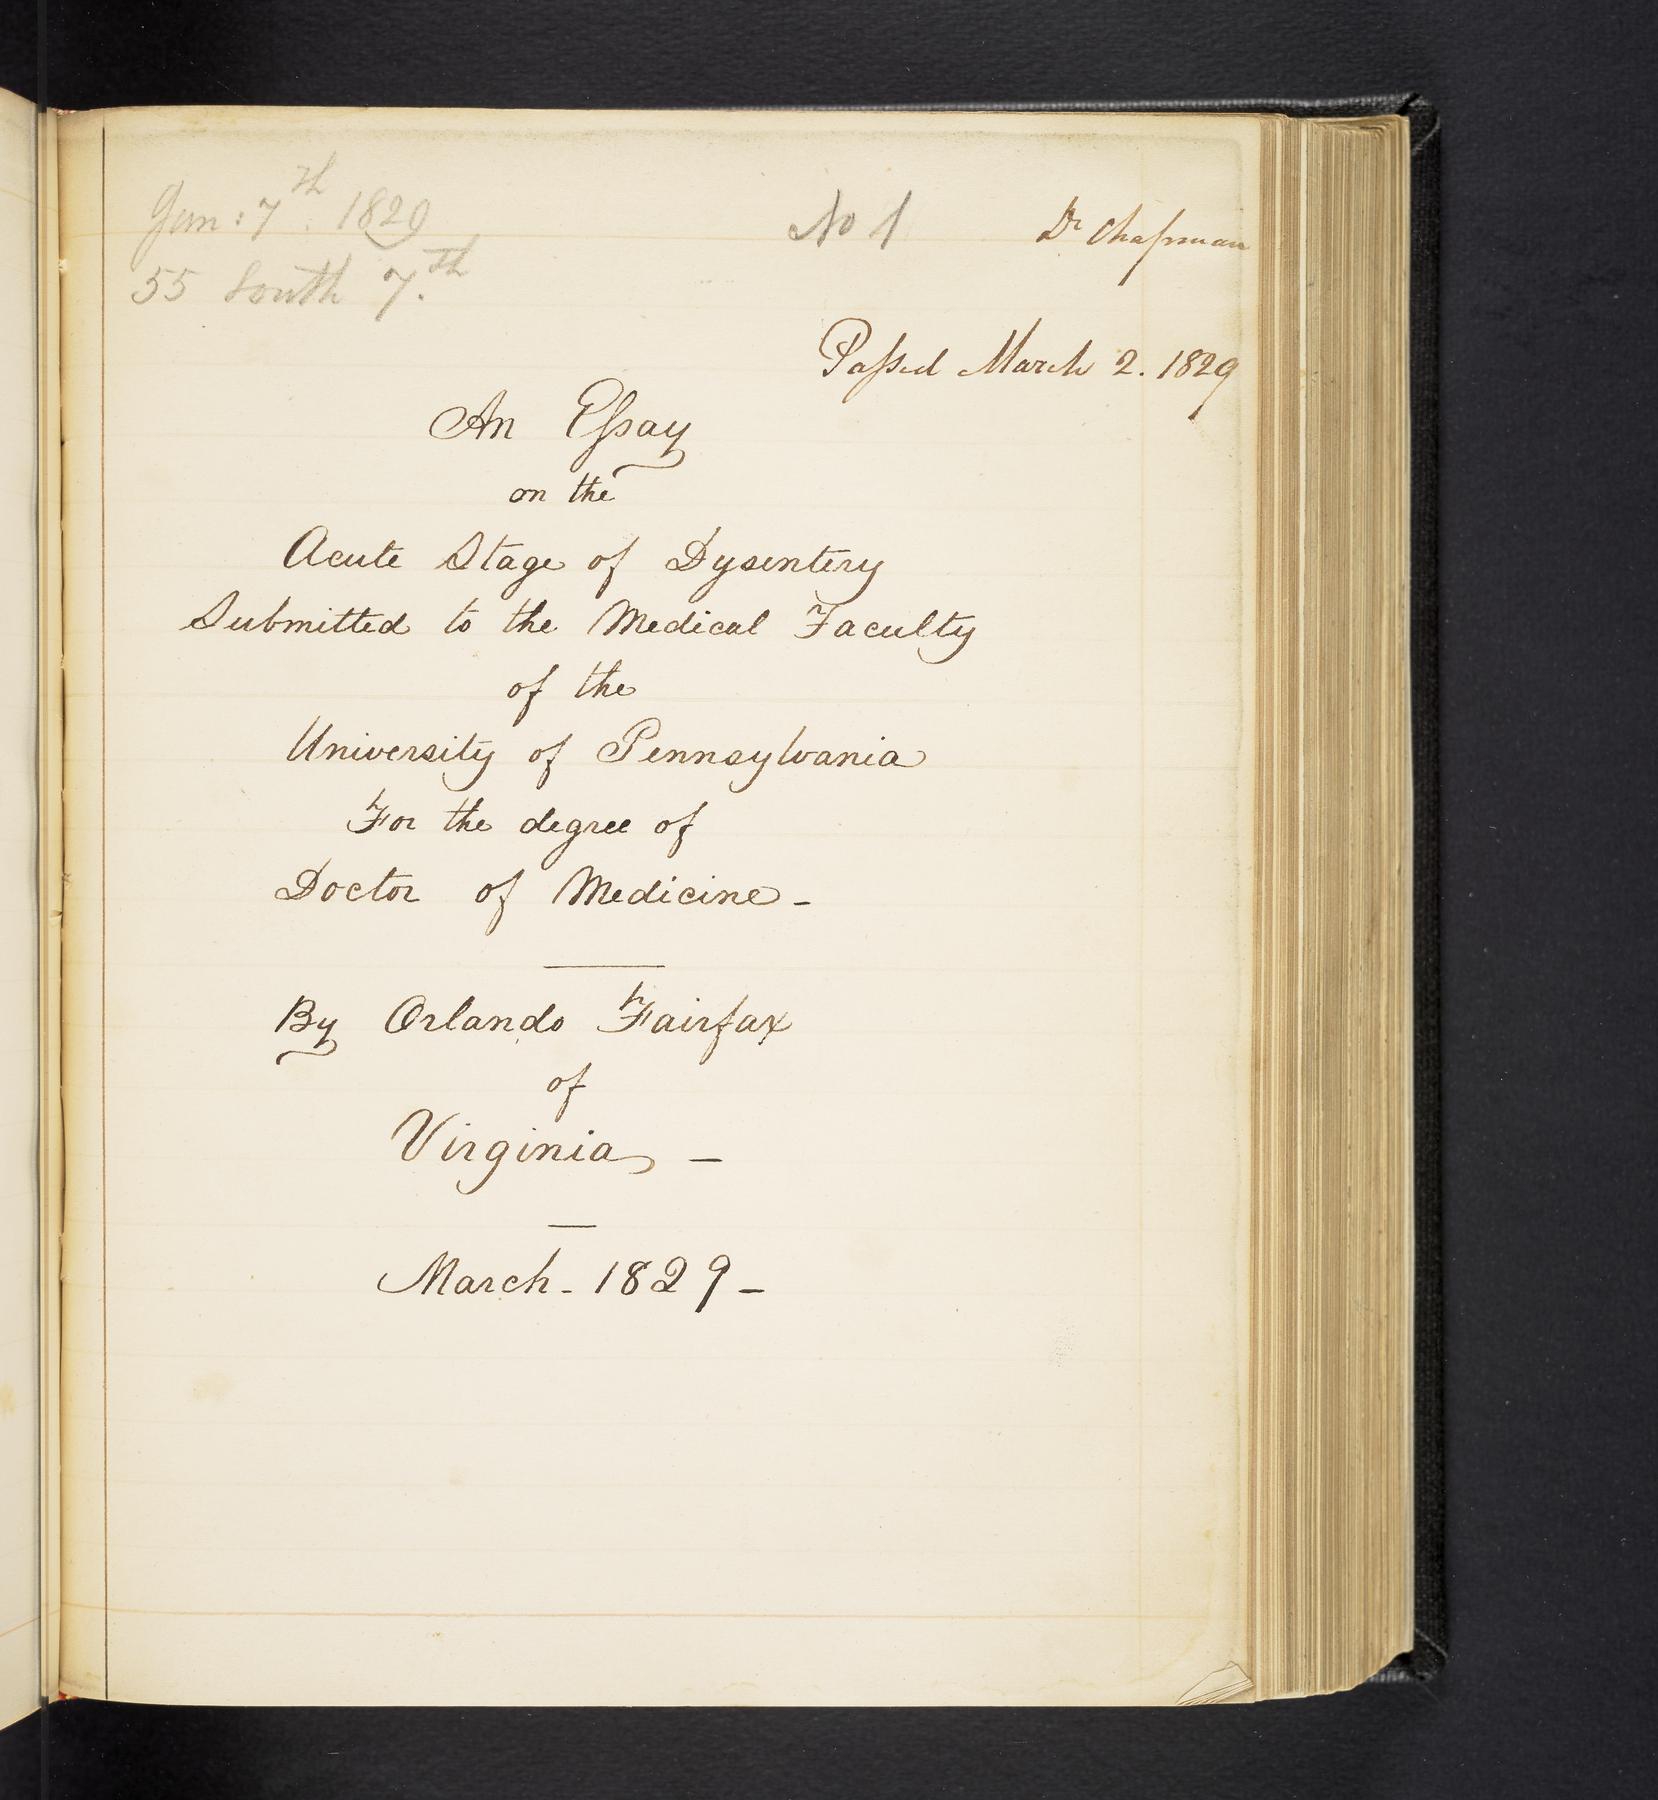 Jan: 7th. 1829
55 South 7.th
No 1
Dr Chapman
Passed March 2. 1829
An Essay
on the
Acute Stage of Dysentery
Submitted to the Medical Faculty
of the
University of Pennsylvania
For the degree of
Doctor of Medicine -
By Orlando Fairfax
of
Virginia -
March - 1829 -